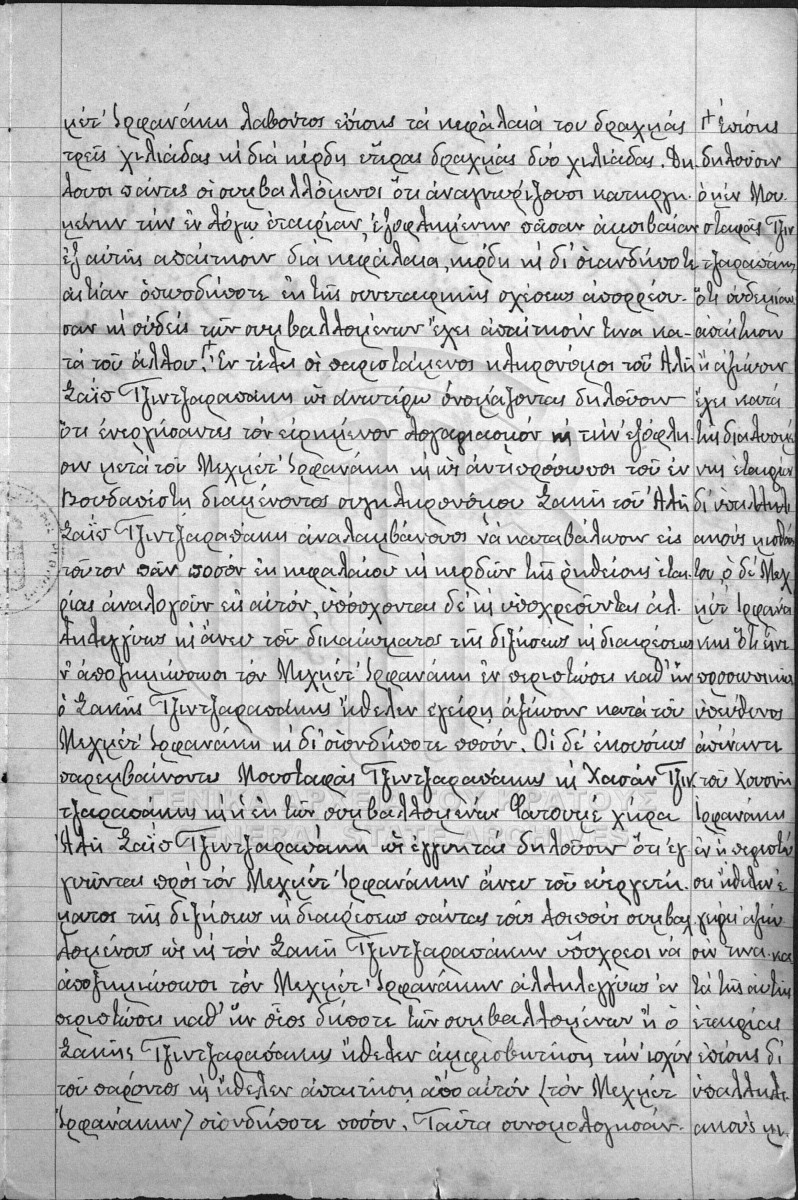 μέτ Ἰρφανάκη λαβόντος ἐπίσης τὰ κεφάλαιά του δραχμὰς
τρεῖς χιλιάδας κ διὰ κέρδη ἕτερας δραχμὰς δύο χιλιάδας. Δη
λοῦσι πάντες οἱ συμβαλλόμενοι ὅτι ἀναγνωρίζουσι κατηργη
μένην τὴν ἐν λόγῳ ἑταιρίαν, ἐξοφλημένην πᾶσαν ἀμοιβαίαν
ἐξ αὐτῆς ἀπαίτησιν διὰ κεφάλαια, κέρδη κ δι' οἱανδήποτε
αἰτίαν ὁπωσδήποτε ἐκ τῆς συνεταιρικῆς σχέσεως ἀπορρέου-
σαν κ οὐδεὶς τῶν συμβαλλομένων ἔχει ἀπαίτησίν τινα κα-
τὰ τοῦ ἄλλου.+ Ἐν τέλει οἱ παριστάμενοι κληρονόμοι τοῦ Ἀλῆ
Σαΐπ Τζιντζαραπάκη ὡς ἀνωτέρω ὀνομάζονται δηλοῦσιν
ὅτι ἐνεργήσαντες τὸν εἰρημένον λογαριασμὸν κ τὴν ἐξόφλη
σιν μετὰ τοῦ Μεχμὲτ Ἰρφανάκη κ ὡς ἀντιπρόσωποι τοῦ ἐν
Βουδαπέστῃ διαμένοντος συγκληρονόμου Σακῆ τοῦ Ἀλῆ
Σαΐπ Τζιντζαραπάκη ἀναλαμβάνουσι νὰ καταβάλωσιν εἰς
τοῦτον πᾶν ποσὸν ἐκ κεφαλαίου κ κερδῶν τῆς ῥηθείσης ἑται
ρίας ἀναλογοῦν εἰς αὐτόν, ὑπόσχονται δὲ κ ὑποχρεοῦνται ἀλ-
ληλεγγύως κ ἄνευ τοῦ δικαιώματος τῆς διζήσεως κ διαιρέσεως
ν' ἀποζημιώσωσι τὸν Μεχμὲτ Ἰρφανάκη ἐν περιπτώσει καθ' ἣν
ὁ Σακῆς Τζιντζαραπάκης ἤθελεν ἐγείρῃ ἀξίωσιν κατὰ τοῦ
Μεχμὲτ Ἰρφανάκη κ δι' οἱονδήποτε ποσόν. Οἱ δὲ ἑκουσίως
παρεμβαίνοντες Μουσταφᾶς Τζιντζαραπάκης κ Χασὰν Τζιν
τζαραπάκης κ ἡ ἐκ τῶν συμβαλλομένων Φατουμὲ χήρα
Ἀλῆ Σαΐπ Τζιντζαραπάκη ὡς ἐγγυηταὶ δηλοῦσιν ὅτι ἐγ
γυῶνται πρὸς τὸν Μεχμὲτ Ἰρφανάκην ἄνευ τοῦ εὐεργετή
ματος τῆς διζήσεως κ διαιρέσεως πάντας τοὺς λοιποὺς συμβαλ
λομένους ὡς κ τὸν Σακῆ Τζιντζαραπάκην ὑπόχρεοι νὰ
ἀποζημιώσωσι τὸν Μεχμὲτ Ἰρφανάκην ἀλληλεγγύως ἐν
περιπτώσει καθ' ἣν οἷος δήποτε τῶν συμβαλλομένων ἢ ὁ
Σακῆς Τζιντζαραπάκης ἤθελεν ἀμφισβητήσῃ τὴν ἰσχὺν
τοῦ παρόντος κ ἤθελεν ἀπαιτήσῃ ἀπὸ αὐτὸν (τὸν Μεχμὲτ
Ἰρφανάκην) οἱονδήποτε ποσόν. Ταῦτα συνομολογησάν-
+ ἐπίσης
δηλοῦσιν
ὁ μὲν Μου
σταφᾶς Τζιν
τζαραπάκης
ὅτι οὐδεμίαν
ἀπαίτησιν
ἢ ἀξίωσιν
ἔχει κατὰ
τῆς διαλυομέ
νης ἑταιρίας
ὁ δὲ Μεχ
μὲτ Ἰρφανά
κης ὅτι
προσωπικῶς
ὑπεύθυνος
ἀπέναντι
τοῦ Χουσνῆ
Ἰρφανάκη
ἐν ᾗ περιπτώ
σει ἤθελεν ἐ
γείρῃ ἀξίω
σίν τινα κα
τὰ τῆς αὐτῆς
ἑταιρίας
ἐπίσης δι'
ὑπαλληλι
ΓΕΝΙΚΑ ΑΡΧΕΙΑ ΤΟΥ ΚΡΑΤΟΥΣ
GENERAL STATE ARCHIVES